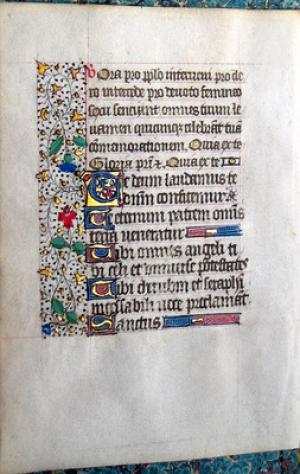 Ora pro pplo interveni pro cle
ro intercede pro devoto femineo
sexu senciant omnes tuum le
vamen quicumq; celebrant tuā
cōmemorationem. Quia ex te
Gloria pr̄i &. Quia ex te
Te deum laudamus te
dn̄m confitemur. &
Te eternum patrem omīs
terra veneratur
Tibi omnes angeli ti
bi celi et universe potestates
Tibi cherubin et seraphī
incessabili voce proclamāt
Sanctus